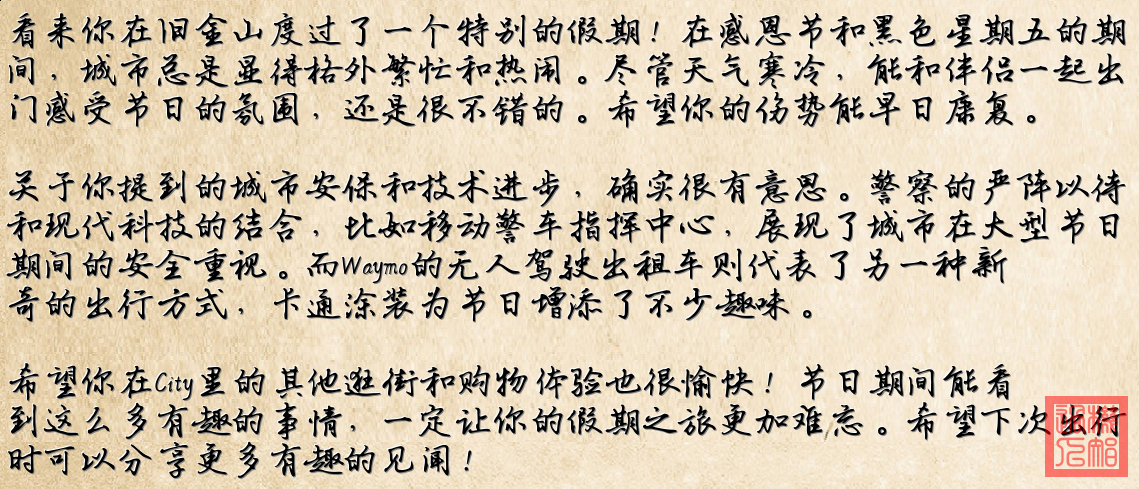 看来你在旧金山度过了一个特别的假期！在感恩节和黑色星期五的期
间，城市总是显得格外繁忙和热闹。尽管天气寒冷，能和伴侣一起出
门感受节日的氛围，还是很不错的。希望你的伤势能早日康复。
关于你提到的城市安保和技术进步，确实很有意思。警察的严阵以待
和现代科技的结合，比如移动警车指挥中心，展现了城市在大型节日
期间的安全重视。而Waymo的无人驾驶出租车则代表了另一种新
奇的出行方式，卡通涂装为节日增添了不少趣味。
希望你在City里的其他逛街和购物体验也很愉快！节日期间能看
到这么多有趣的事情，一定让你的假期之旅更加难忘。希望下次出行
时可以分享更多有趣的见闻！